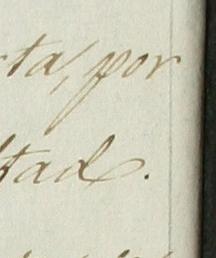 rta, por
ltad.